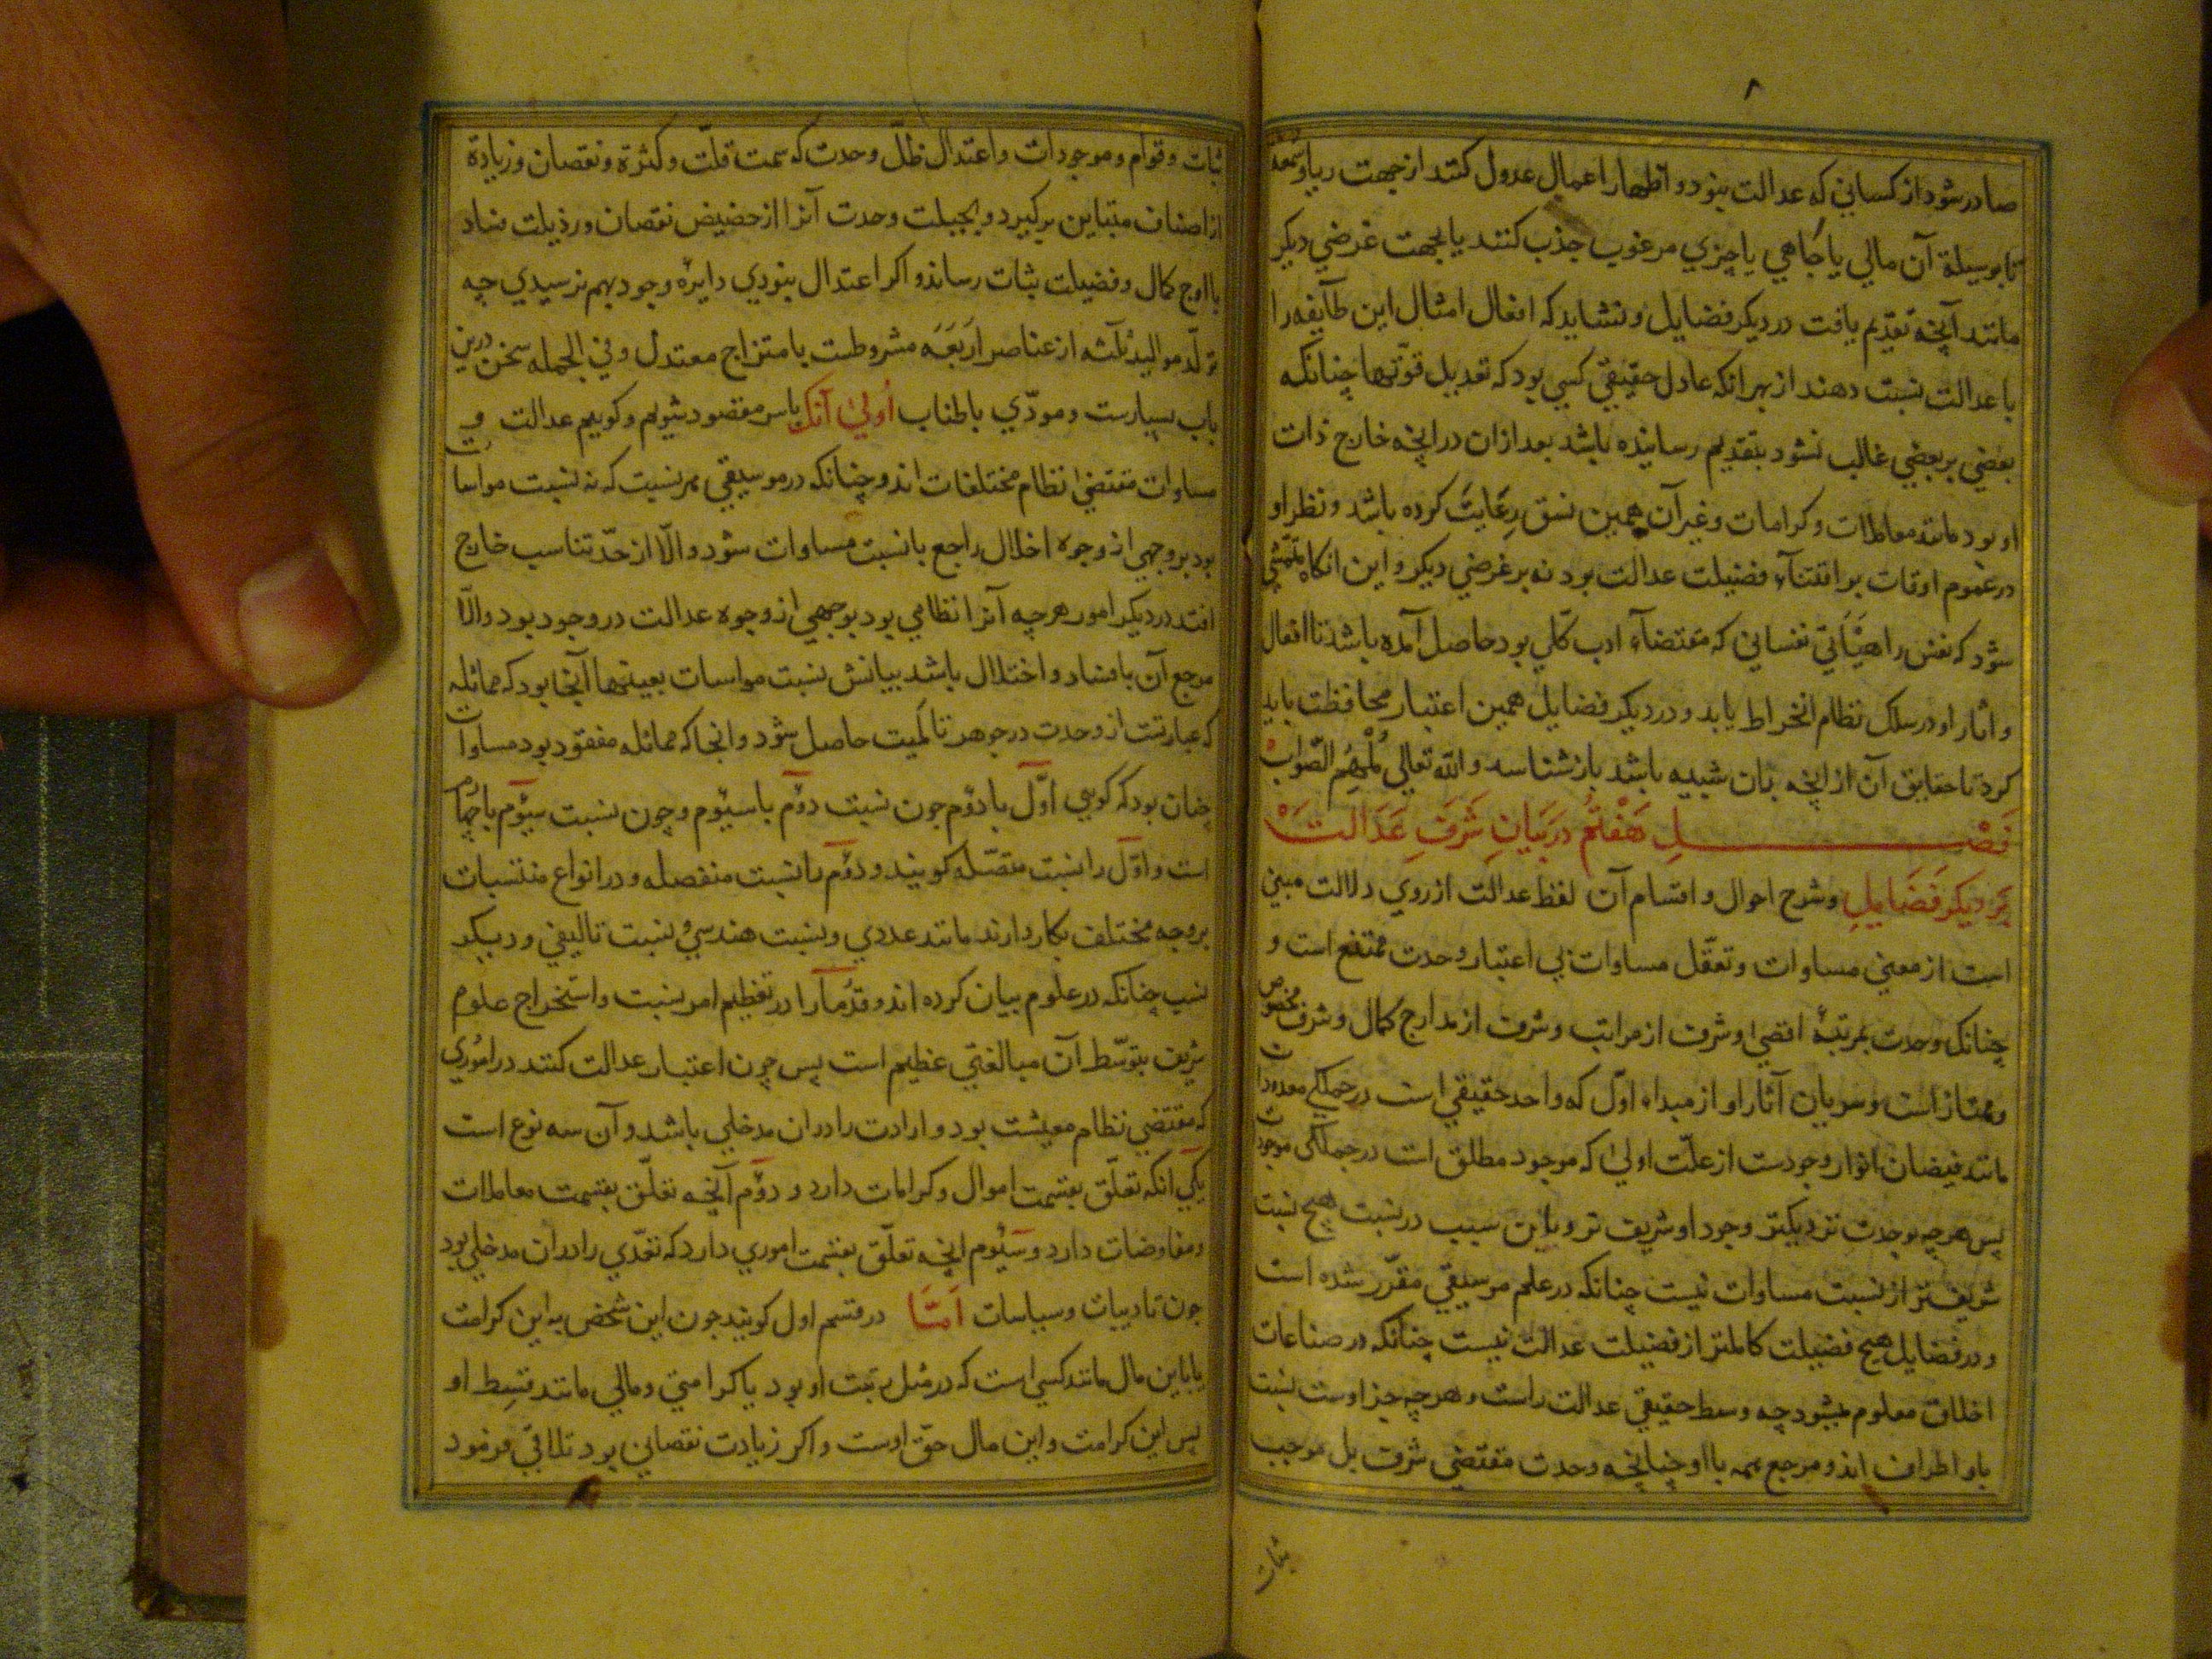 صادر شود از کسانی که عدالت بنود و اظهار اعمال عدول کنند از جهت ریا و سمعه
تا بوسیلهٔ آن مالی یا جاهی یا چیزی مرغوب جذب کنند یا بجهت غرضی دیکر
مانند آنچه تقدیم یافت در دیکر فضایل و نشاید که افعال امثال این طآیفه را
با عدالت نسبت دهند از بهر انکه عادل حقیقی کسی بود که تعدیل قوّتها چنانکه
بعضی بر بعضی غالب نشود بتقدیم رسانیده باشد بعد ازان در انچه خارج ذات
او بود مانند معاملات و کرامات و غیر آن همین نسق رعایت کرده باشد و نظر او
در عموم اوقات بر اقتنآء فضیلت عدالت بود نه بر غرضی دیکر و این انکاه متمشی
شود که نفس را هیأتی نفسانی که مقتضآء ادب کلّی بود حاصل آمده باشد تا افعال
و اثار او در سلک نظام انخراط یابد و در دیکر فضایل همین اعتبار محافظت باید
کرد تا حقایق آن از انچه بدان شبیه باشد باز شناسد و الله تعالی مُلْهِم الصّواب
فَصْلِ هَفْتُم در بَیانِ شَرَفِ عَدَالت
بَر دیکر فَضَایل و شرح احوال و اقسام آن لفظ عدالت از روی دلالت مبنی
است از معنی مساوات و تعقّل مساوات بی اعتبار وحدت ممتنع است و
چنانک وحدت بمرتبهٔ اقصی و شرف از مراتب و شرف از مدارج کمال و شرف مخصوص
و ممتاز است و سریان آثار او از مبداء اوّل که واحد حقیقی است در جملکی معدودات
مانند فیضان انوار وجودست از علّت اولی که موجود مطلق است در جملکی موجودات
پس هرچه بوحدت نزدیکتر وجود او شریف تر و باین سبب در نسبت هیچ نسبت
شریف تر از نسبت مساوات نیست چنانکه در علم موسیقی مقرّر شده است
و در فضایل هیچ فضیلت کاملتر از فضیلت عدالت نیست چنانکه در صناعات
اخلاق معلوم میشود چه وسط حقیقی عدالت راست و هرچه جز اوست بنسبت
باو اطراف اند و مرجع همه با او چنانچه وحدت مقتضی شرف بل موجب
ثبات
ثبات و قوام و موجودات و اعتدال ظلّ وحدت که سمت قلّت و کثرة و نقصان و زیادة
از اصناف متباین برکیرد و بحیلت وحدت آنرا از حضیض نقصان و رذیلت فساد
با اوج کمال و فضیلت ثبات رساند و اکر اعتدال بنودی دایرهٔ وجود بهم نرسیدی چه
تولّد موالید ثلثه از عناصر اربعه مشروطست بامتزاج معتدل و فی الجمله سخن درین
باب بسیارست و مودّی باطناب اُولی آنک با سر مقصود شویم و کوییم عدالت و
مساوات مقتضی انظام مختلفات اند و چنانکه در موسیقی هر نسبت که نه نسبت مواسات
بود بر وجهی از وجوه اخلال راجع با نسبت مساوات شود و الّا از حدّ تناسب خارج
افتد در دیکر امور هرچه آنرا نظامی بود بوجهی از وجوه عدالت درو موجود بود و الّا
مرجع آن با فساد و اختلال باشد بیانش نسبت مواسات بعینها آنجا بود که مماثله
که عبارتست از وحدت در جوهر تا کمیت حاصل شود و انجا که مماثله مفقود بود مساوات
چنان بود که کویی اوّل با دوّم جون نسبت دوّم با سیّوم و چون نسبت سیّوم با چهارم
است و اوّل را نسبت متّصله کویند و دوّم را نسبت منفصله و در انواع منتسبات
بر وجه مختلف بکار دارند مانند عددی و نسبت هندسی و نسبت تالیفی و دیکر
نسب چنانکه در علوم بیان کرده اند و قدمآ را در تعظیم امر نسبت و استخراج علوم
شریف بتوسّط آن مبالغتی عظیم است پس چون اعتبار عدالت کنند در اموری
که مقتضی نظام معیشت بود و ارادت را دران مدخلی باشد و آن سه نوع است
یکی انکه تعلّق بقسمت اموال و کرامات دارد و دوّم آنچه تعلّق بقسمت معاملات
و مفاوضات دارد و سیّوم انچه تعلّق بقسمت اموری دارد که تعدّی را دران مدخلی بود
جون تادیبات و سیاسات اَمّا در قسم اول کویند جون این شخص به این کرامت
یا باین مال مانند کسی است که در مثل رتبت او بود یا کرامتی و مالی مانند قسط او
پس این کرامت و این مال حقّ اوست و اکر زیادت نقصانی بود تلافی فرمود